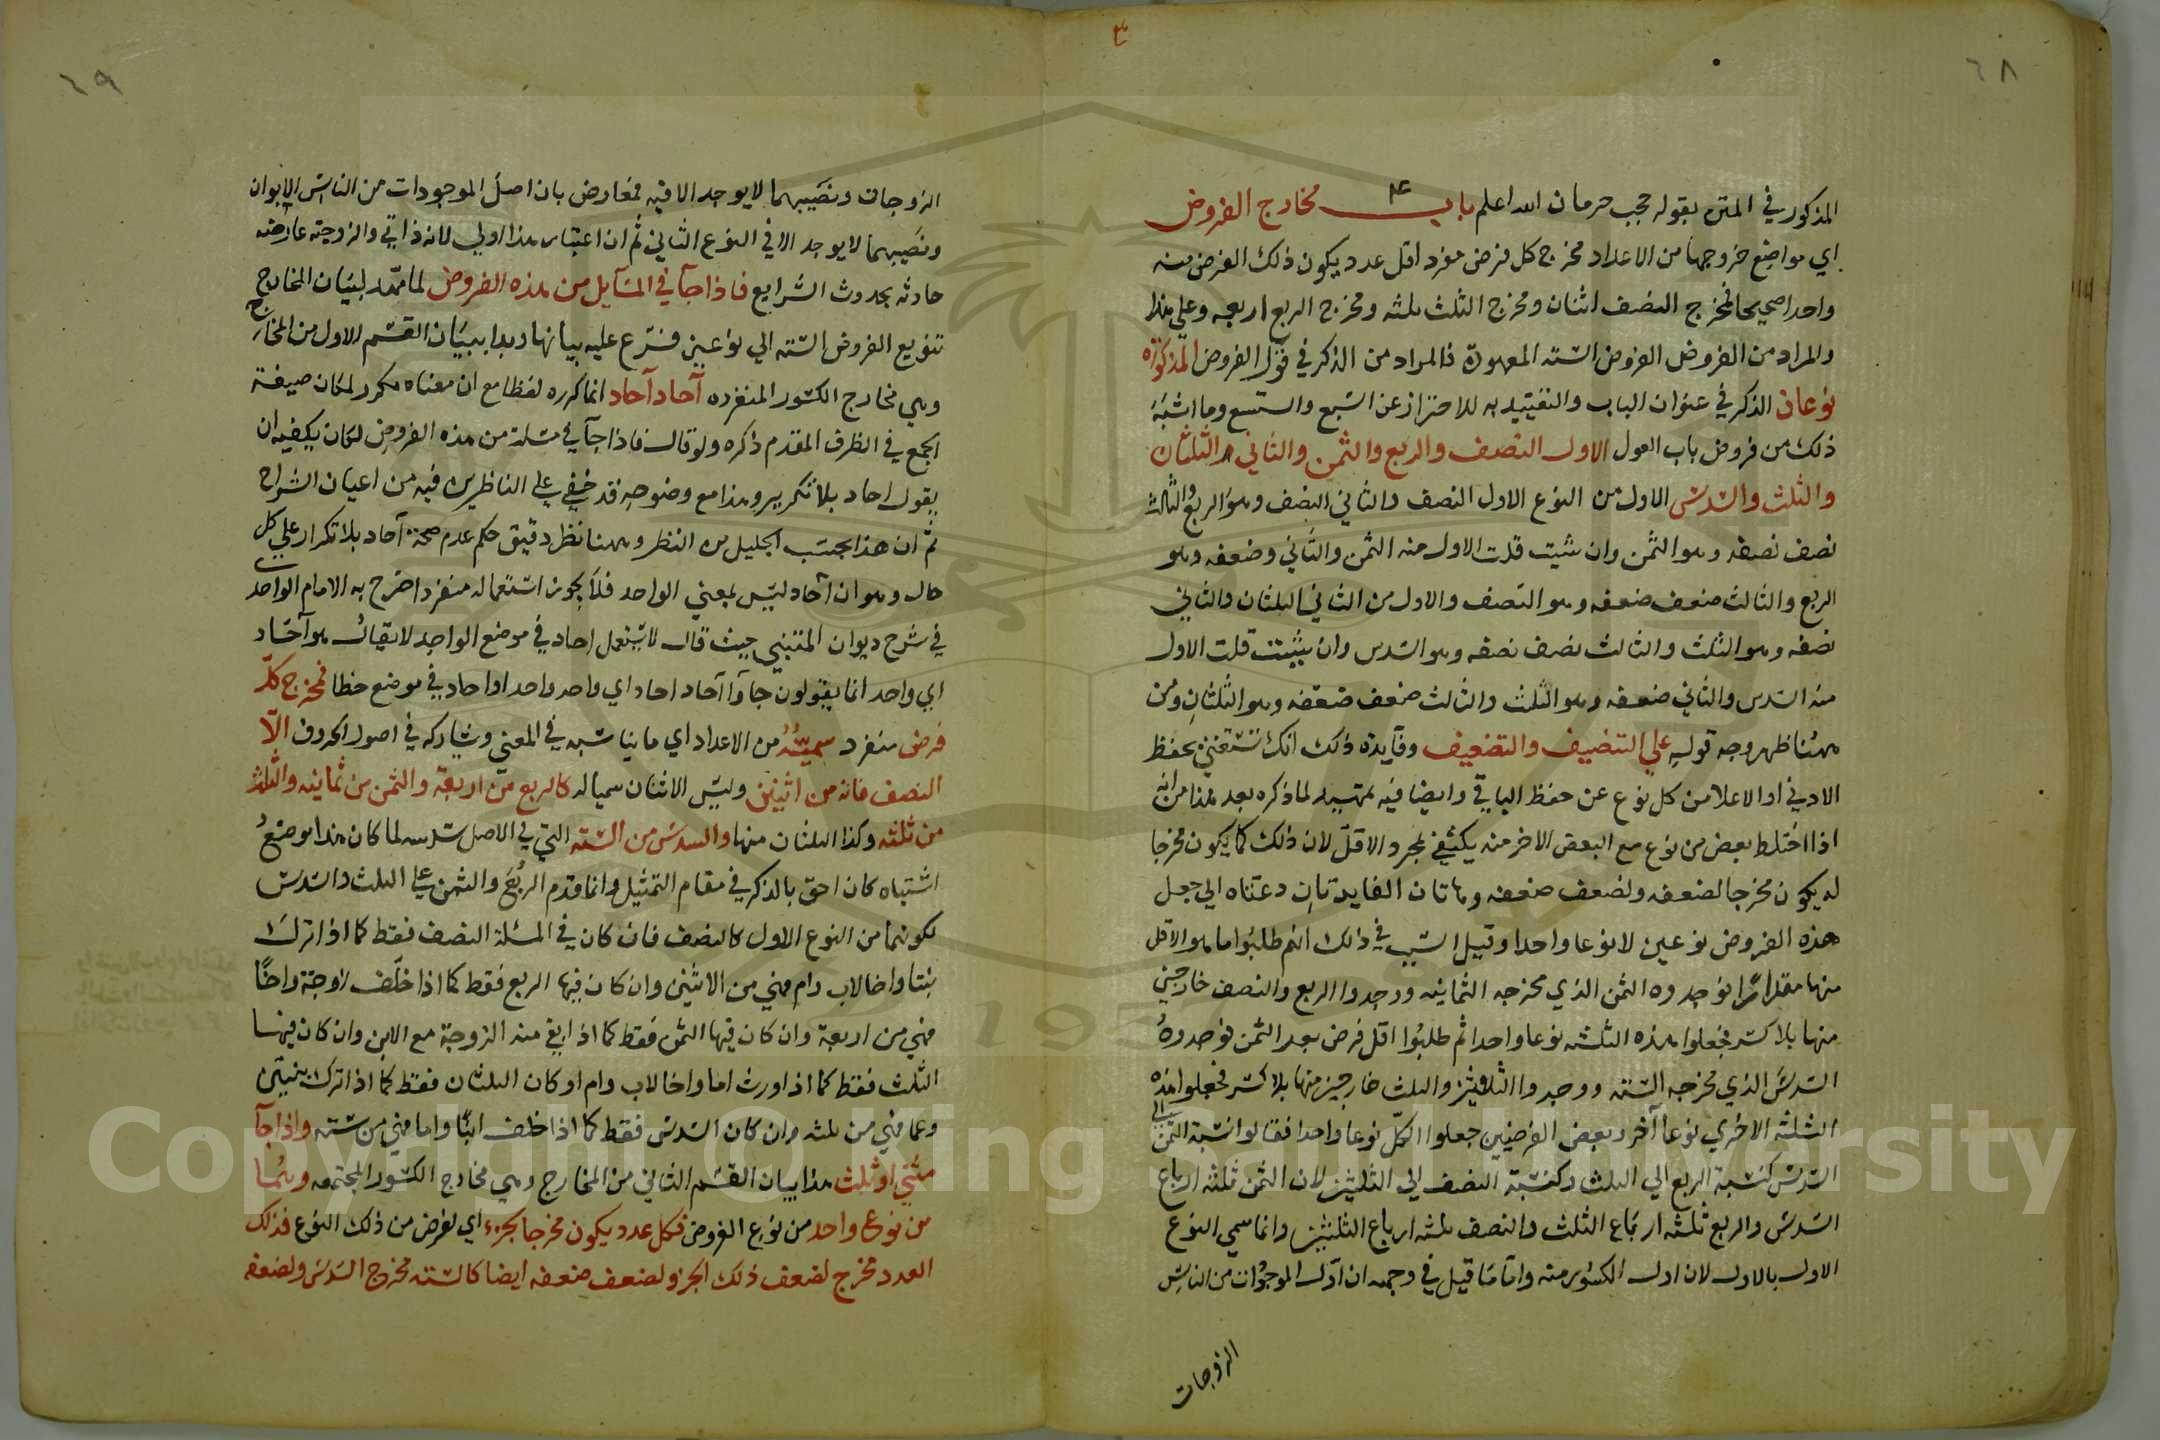 ٦٨
المذكور في المتن بقوله حجب حرمان الله اعلم باب مخارج الفروض
اي مواضع خروجها من الاعداد مخرج كل فرض مفرد اقل عدد يكون ذلك الفرض منه
واحدا صحيحا فمخرج النصف اثنان ومخرج الثلث ثلثه ومخرج الربع اربعه وعلي هذا
والمراد من الفروض الفروض الستة المعهودة فالمراد من الذكر في قوله الفروض المذكورة
نوعان الذكر في عنوان الباب والتقييد به للاحتراز عن السبع والتسع وما اشبه
ذلك من فروض باب العول الاول النصف والربع والثمن والثاني الثلثان
والثلث والسدس الاول من النوع الاول النصف والثاني النصف وهو الربع والثالث
نصف نصفه وهو الثمن وان شيت قلت الاول منه الثمن والثاني وضعفه وهو
الربع والثالث ضعف ضعفه وهو النصف والاول من الثاني الثلثان والثاني
نصفه وهو الثلث والثالث نصف نصفه وهو السدس وان شيت قلت الاول
منه السدس والثاني ضعفه وهو الثلث والثالث ضعف ضعفه وهو الثلثان ومن
ههنا ظهر وجه قوله علي التنصيف والتضعيف وفايدة ذلك انك تستغني بحفظ
الادني او الاعلا من كل نوع عن حفظ الباقي وايضا فيه تمهيد لما ذكره بعد هذا من انه
اذا اختلط بعض من نوع مع البعض الاخر منه يكتفي بمجرد الاقل لان ذلك كما يكون مخرجا
له يكون مخرجا لضعفه ولضعف ضعفه وهاتان الفايدتان دعتاه الي جعل
هذه الفروض نوعين لا نوعا واحدا وقيل السبب في ذلك انهم طلبوا ما هو الاقل
منها مقدارا فوجدوه الثمن الذي مخرجه الثمانيه ووجدوا الربع والنصف خارجين
منها بلا كسر فجعلوا هذه الثلثه نوعا واحدا ثم طلبوا اقل فرض بعد الثمن فوجدوه
السدس الذي مخرجه الستة ووجدوا الثلثين والثلث خارجين منها بلا كسر فجعلوا هذه
الثلثه الاخري نوعا آخر وبعض الفرضيين جعلوا الكل نوعا واحدا فقالوا نسبة الثمن الي
السدس كنسبة الربع الي الثلث وكنسبة النصف الي الثلثين لان الثمن ثلثه ارباع
السدس والربع ثلثه ارباع الثلث والنصف ثلثه ارباع الثلثين وانما سمي النوع
الاول بالاول لان اول الكسور منه واما ما قيل في وجهه ان اول الموجودات من الناس
الزوجات
٦٩
الزوجات ونصيبهما لا يوجد الا فيه فمعارض بان اصل الموجودات من الناس الابوان
ونصيبهما لا يوجد الا في النوع الثاني ثم ان اعتبار هذا اولي لانه ذاتي والزوجية عارضة
حادثه بحدوث الشرايع فاذا جآ في المسايل من هذه الفروض لما مهد لبيان المخارج
تنويع الفروض الستة الي نوعين فرع عليه بيانها وبدا ببيان القسم الاول من المخارج
وهي مخارج الكسور المنفرده آحاد آحاد انما كرره لفظا مع ان معناه مكرر لمكان صيغة
الجمع في الظرف المقدم ذكره ولو قال فاذا جآ في مسئلة من هذه الفروض لكان يكفيه ان
يقول احاد بلا تكرير وهذا مع وضوحه قد خفي علي الناظرين فيه من اعيان الشراح
ثم ان هذا بحسب الجليل من النظر وههنا نظر دقيق حكم عدم صحة آحاد بلا تكرار علي كل
حال وهو ان آحاد ليس بمعني الواحد فلا يجوز استعماله منفردا صرح به الامام الواحدي
في شرح ديوان المتنبي حيث قال لا يستعمل احاد في موضع الواحد لا يقال هو آحاد
اي واحد انما يقولون جاوا آحاد احاد اي واحد واحدا واحاد في موضع خطا فمخرج كل
فرض منفرد سميّه من الاعداد اي ما يناسبه في المعني ويشاركه في اصول الحروف الّا
النصف فانه من اثنين وليس الاثنان سميا له كالربع من اربعة والثمن من ثمانيه والثلث
من ثلثه وكذا الثلثان منها والسدس من الستة التي في الاصل سدسه لما كان هذا موضع
اشتباه كان احق بالذكر في مقام التمثيل وانما قدم الربع والثمن علي الثلث والسدس
لكونهما من النوع الاول كالنصف فان كان في المسئلة النصف فقط كما اذا ترك
بنتا واخا لاب وام فهي من الاثنين وان كان فيها الربع فقط كما اذا خلف زوجة واخا
فهي من اربعة وان كان فيها الثمن فقط كما اذا ابقي منه الزوجة مع الابن وان كان فيها
الثلث فقط كما اذا ورث اما واخا لاب وام او كان الثلثان فقط كما اذا ترك بنتين
وعما فهي من ثلثه وان كان السدس فقط كما اذا خلف ابنا واما فهي من ستة واذا جآ
مثني او ثلث هذا بيان القسم الثاني من المخارج وهي مخارج الكسور المجتمعه وهما
من نوع واحد من نوعي الفروض فكل عدد يكون مخرجا لجزء اي لفرض من ذلك النوع فذلك
العدد مخرج لضعف ذلك الجزء ولضعف ضعفه ايضا كالستة مخرج السدس ولضعفه
Copyright © King Saud University
1957